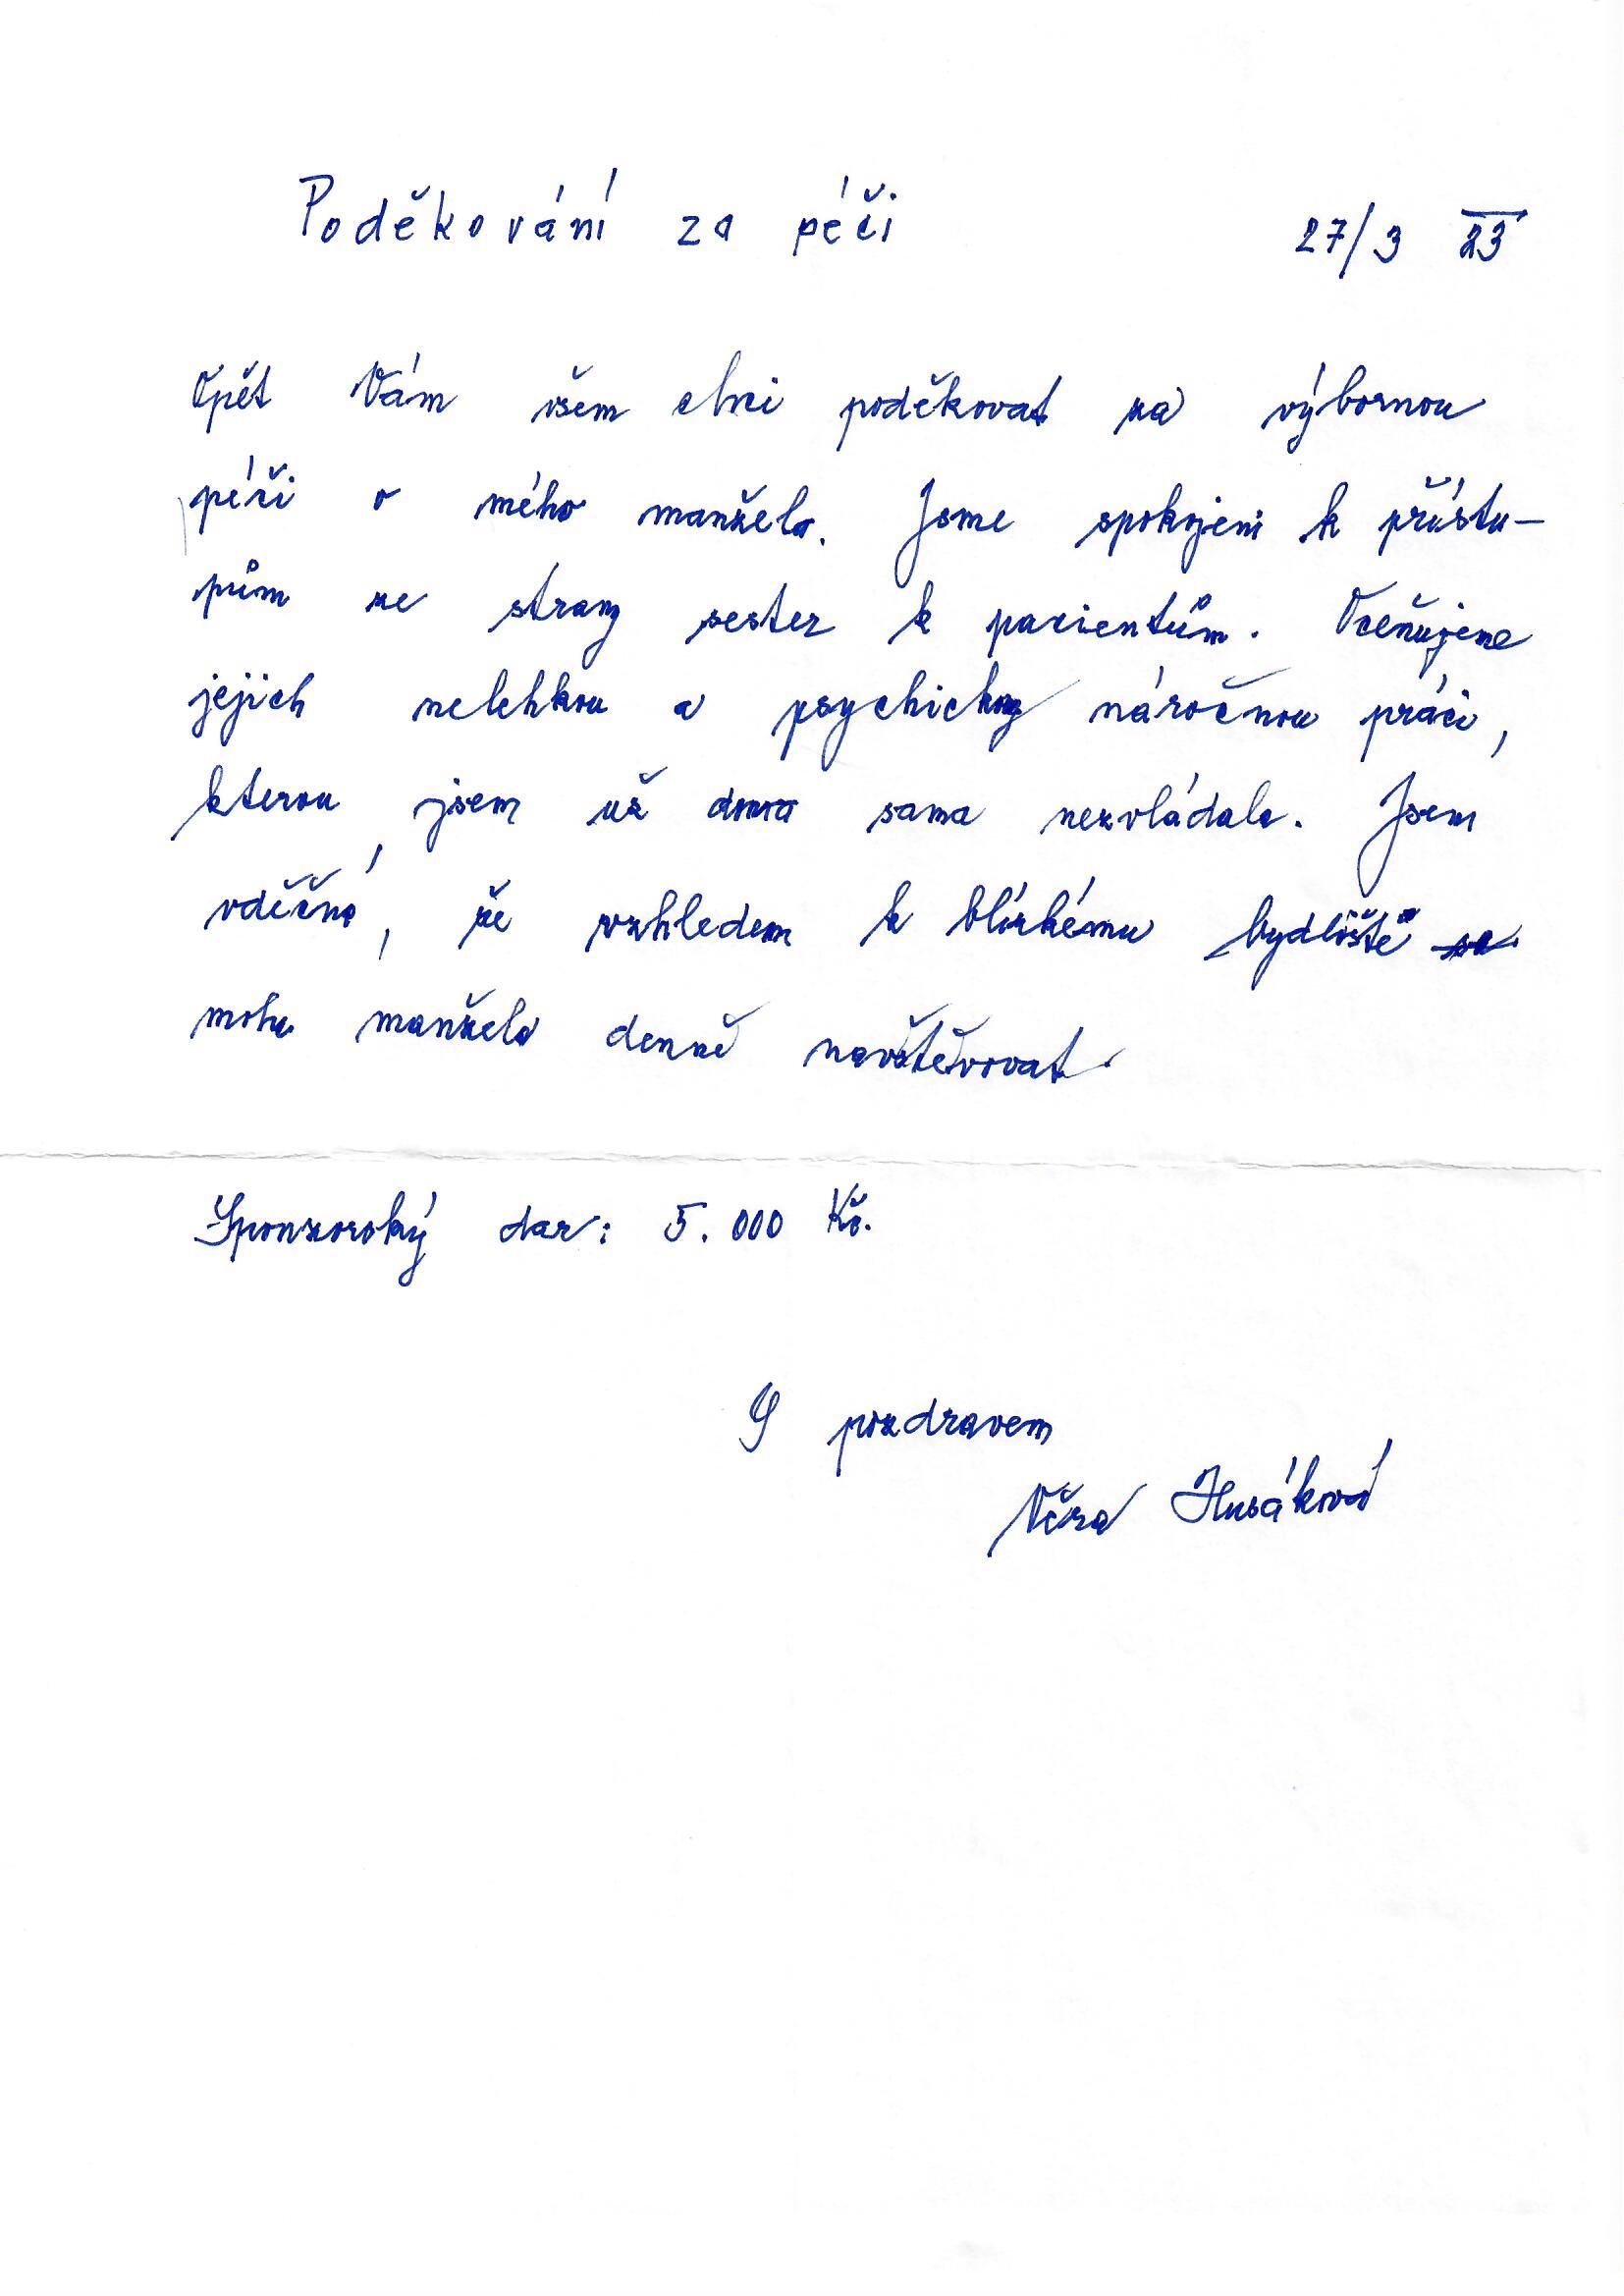 Poděkování za péči 27/3 23
Opět Vám všem chci poděkovat za výbornou
péči o mého manžela. Jsme spokojeni k přístu-
pům ze strany sester k pacientům. Oceňujeme
jejich nelehkou a psychicky náročnou práci,
kterou jsem už doma sama nezvládala. Jsem
vděčná, že vzhledem k blízkému bydliště
mohu manžela denně navštěvovat.
Sponzorský dar: 5.000 Kč.
S pozdravem
Věra Husáková